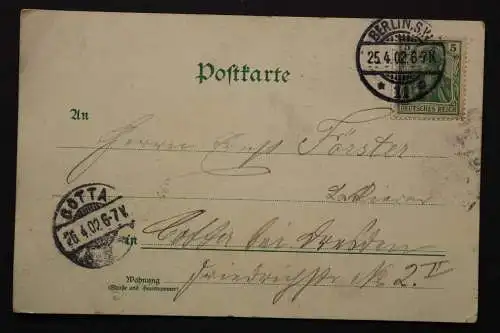 BERLIN.S.W.
25.4.02.6-7N.
5
DEUTSCHES REICH
Postkarte
An
Herrn Förster
COTTA
26.4.02.6-7V.
in Cotta bei Dresden
Friedrichstr № 2 II
Wohnung
(Straße und Hausnummer)